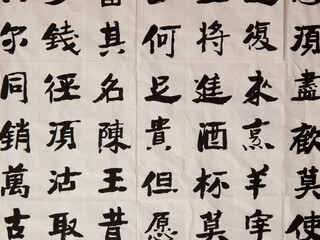 須盡歡莫使
復來烹羊宰
將進酒杯莫
何足貴但愿
其名陳王昔
錢徑須沽取
尔同銷萬古